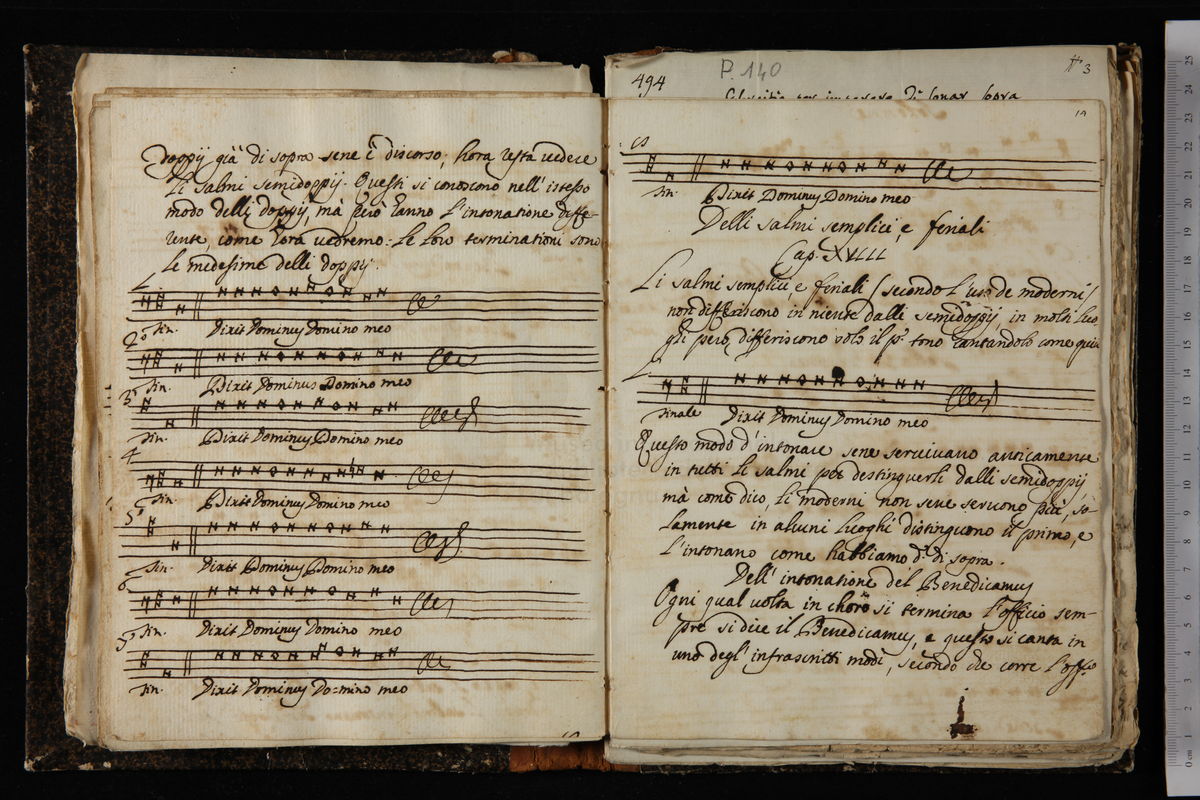 doppij già di sopra sene è discorso; hora resta vedere
li salmi semidoppij. Questi si conoscono nell'istesso
modo delli doppij, mà però hanno l'intonatione diffe-
rente, come hora vedremo: le loro terminationi sono
le medesime delli doppij.
Fin. Dixit Dominus Domino meo
2º
Fin. Dixit Dominus Domino meo
3º
Fin. Dixit Dominus Domino meo
4
Fin. Dixit Dominus Domino meo
5º
Fin. Dixit Dominus Domino meo
6
Fin. Dixit Dominus Domino meo
Fin. Dixit Dominus Do=mino meo
494
P. 140
3
di sonar sopra
Fin. Dixit Dominus Domino meo
Delli salmi semplici, e feriali
Cap. XVIIII
Li salmi semplici, e feriali (secondo l'uso de moderni)
non differiscono in niente dalli semidoppij in molti luo,
ghi però, differiscono solo il pº tono cantandolo come quì
Finale Dixit Dominus Domino meo
Questo modo d'intonare sene servivano anticamente
in tutti li salmi per destinguerli dalli semidoppij,
mà come dico, li moderni non sene servono più, so-
lamente in alcuni luoghi distinguono il primo, e
l'intonano come habbiamo dº di sopra.
Dell'intonatione del Benedicamus
Ogni qual volta in choro si termina l'officio sem-
pre si dice il Benedicamus, e questo si canta in
uno degl'infrascritti modi, secondo che corre l'offº